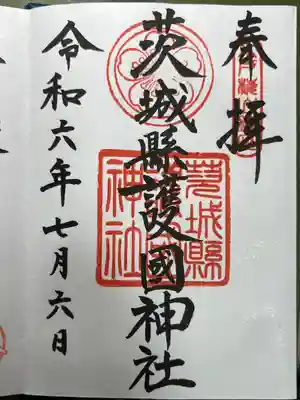 奉拝
茨城縣護國神社
令和六年七月六日
茨城縣
護國
神社